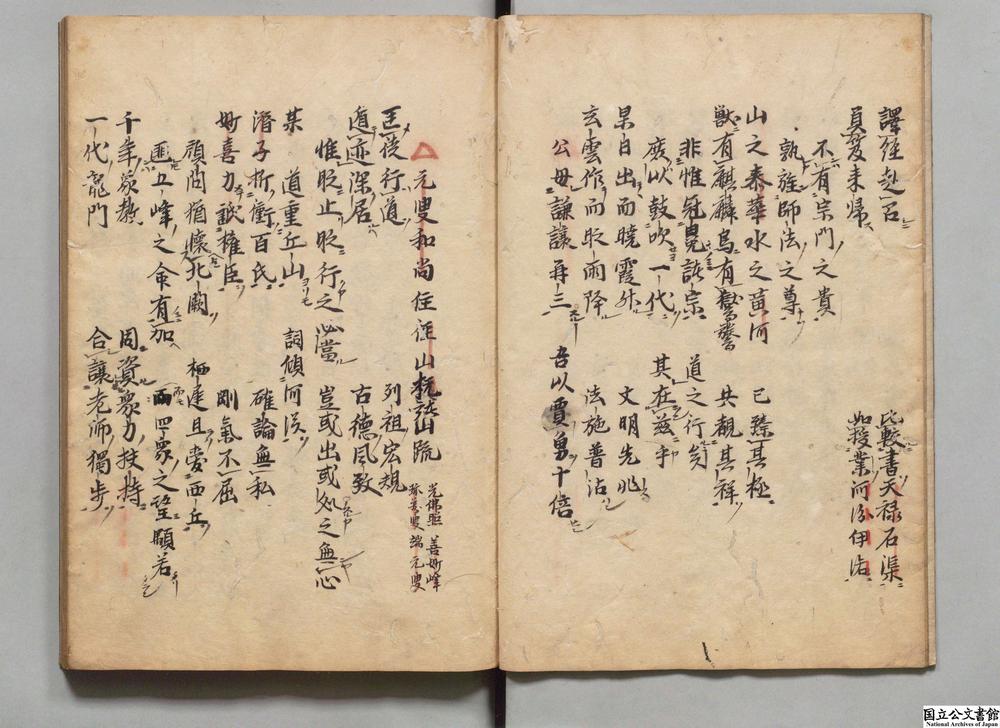 譯經赴召 比較書天禄石渠
員夏来帰 如授業河汾伊洛
不有宗門之貴
孰旌師法之尊
山之泰華水之黄河 已臻其極
獣有麒麟鳥有鸑鷟 共観其祥
非惟冠冕諸宗 道之行矣
庶以鼓吹一代 其在茲乎
杲日出而暁霞 文明先兆
玄雲作而時雨降 法施普沾
公毋謙讓再三 吾以賈勇十倍
△元叟和尚住径山杭諸山疏 光佛照 善妙峰 端元叟
匡徒行道 列祖宏規
遁迹深居 古德風致
惟時止時行之 當 豈或出或処之無心
某 道重丘山 詞傾河漢
潜子折衝百氏 確論無私
妙喜力詆権臣 剛氣不屈
顧問猶懐北闕 栖遅且愛西丘
五峰之命有加 而四衆之望顒若
千年象教 周資衆力扶持
一代龍門 合讓老師獨歩
国立公文書館
National Archives of Japan